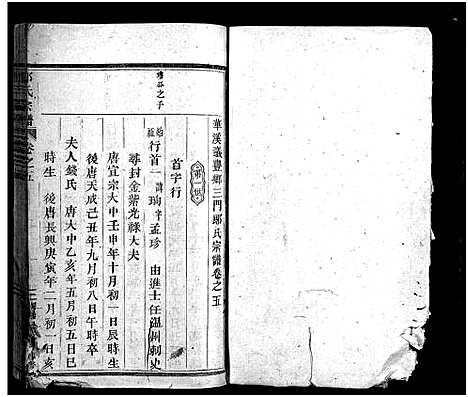 華溪義豐鄉三門鄭氏宗譜卷之五
第一世
首字行
始祖行首一諱珣字孟珍 由進士任溫州刺史
之子
尋封金紫光祿大夫
唐宣宗大中壬申年十月初一日辰時生
後唐天成己丑年九月初八日午時卒
夫人錢氏 唐大中乙亥年五月初五日巳
時生 後唐長興庚寅年二月初一日亥
氏宗譜 卷之五